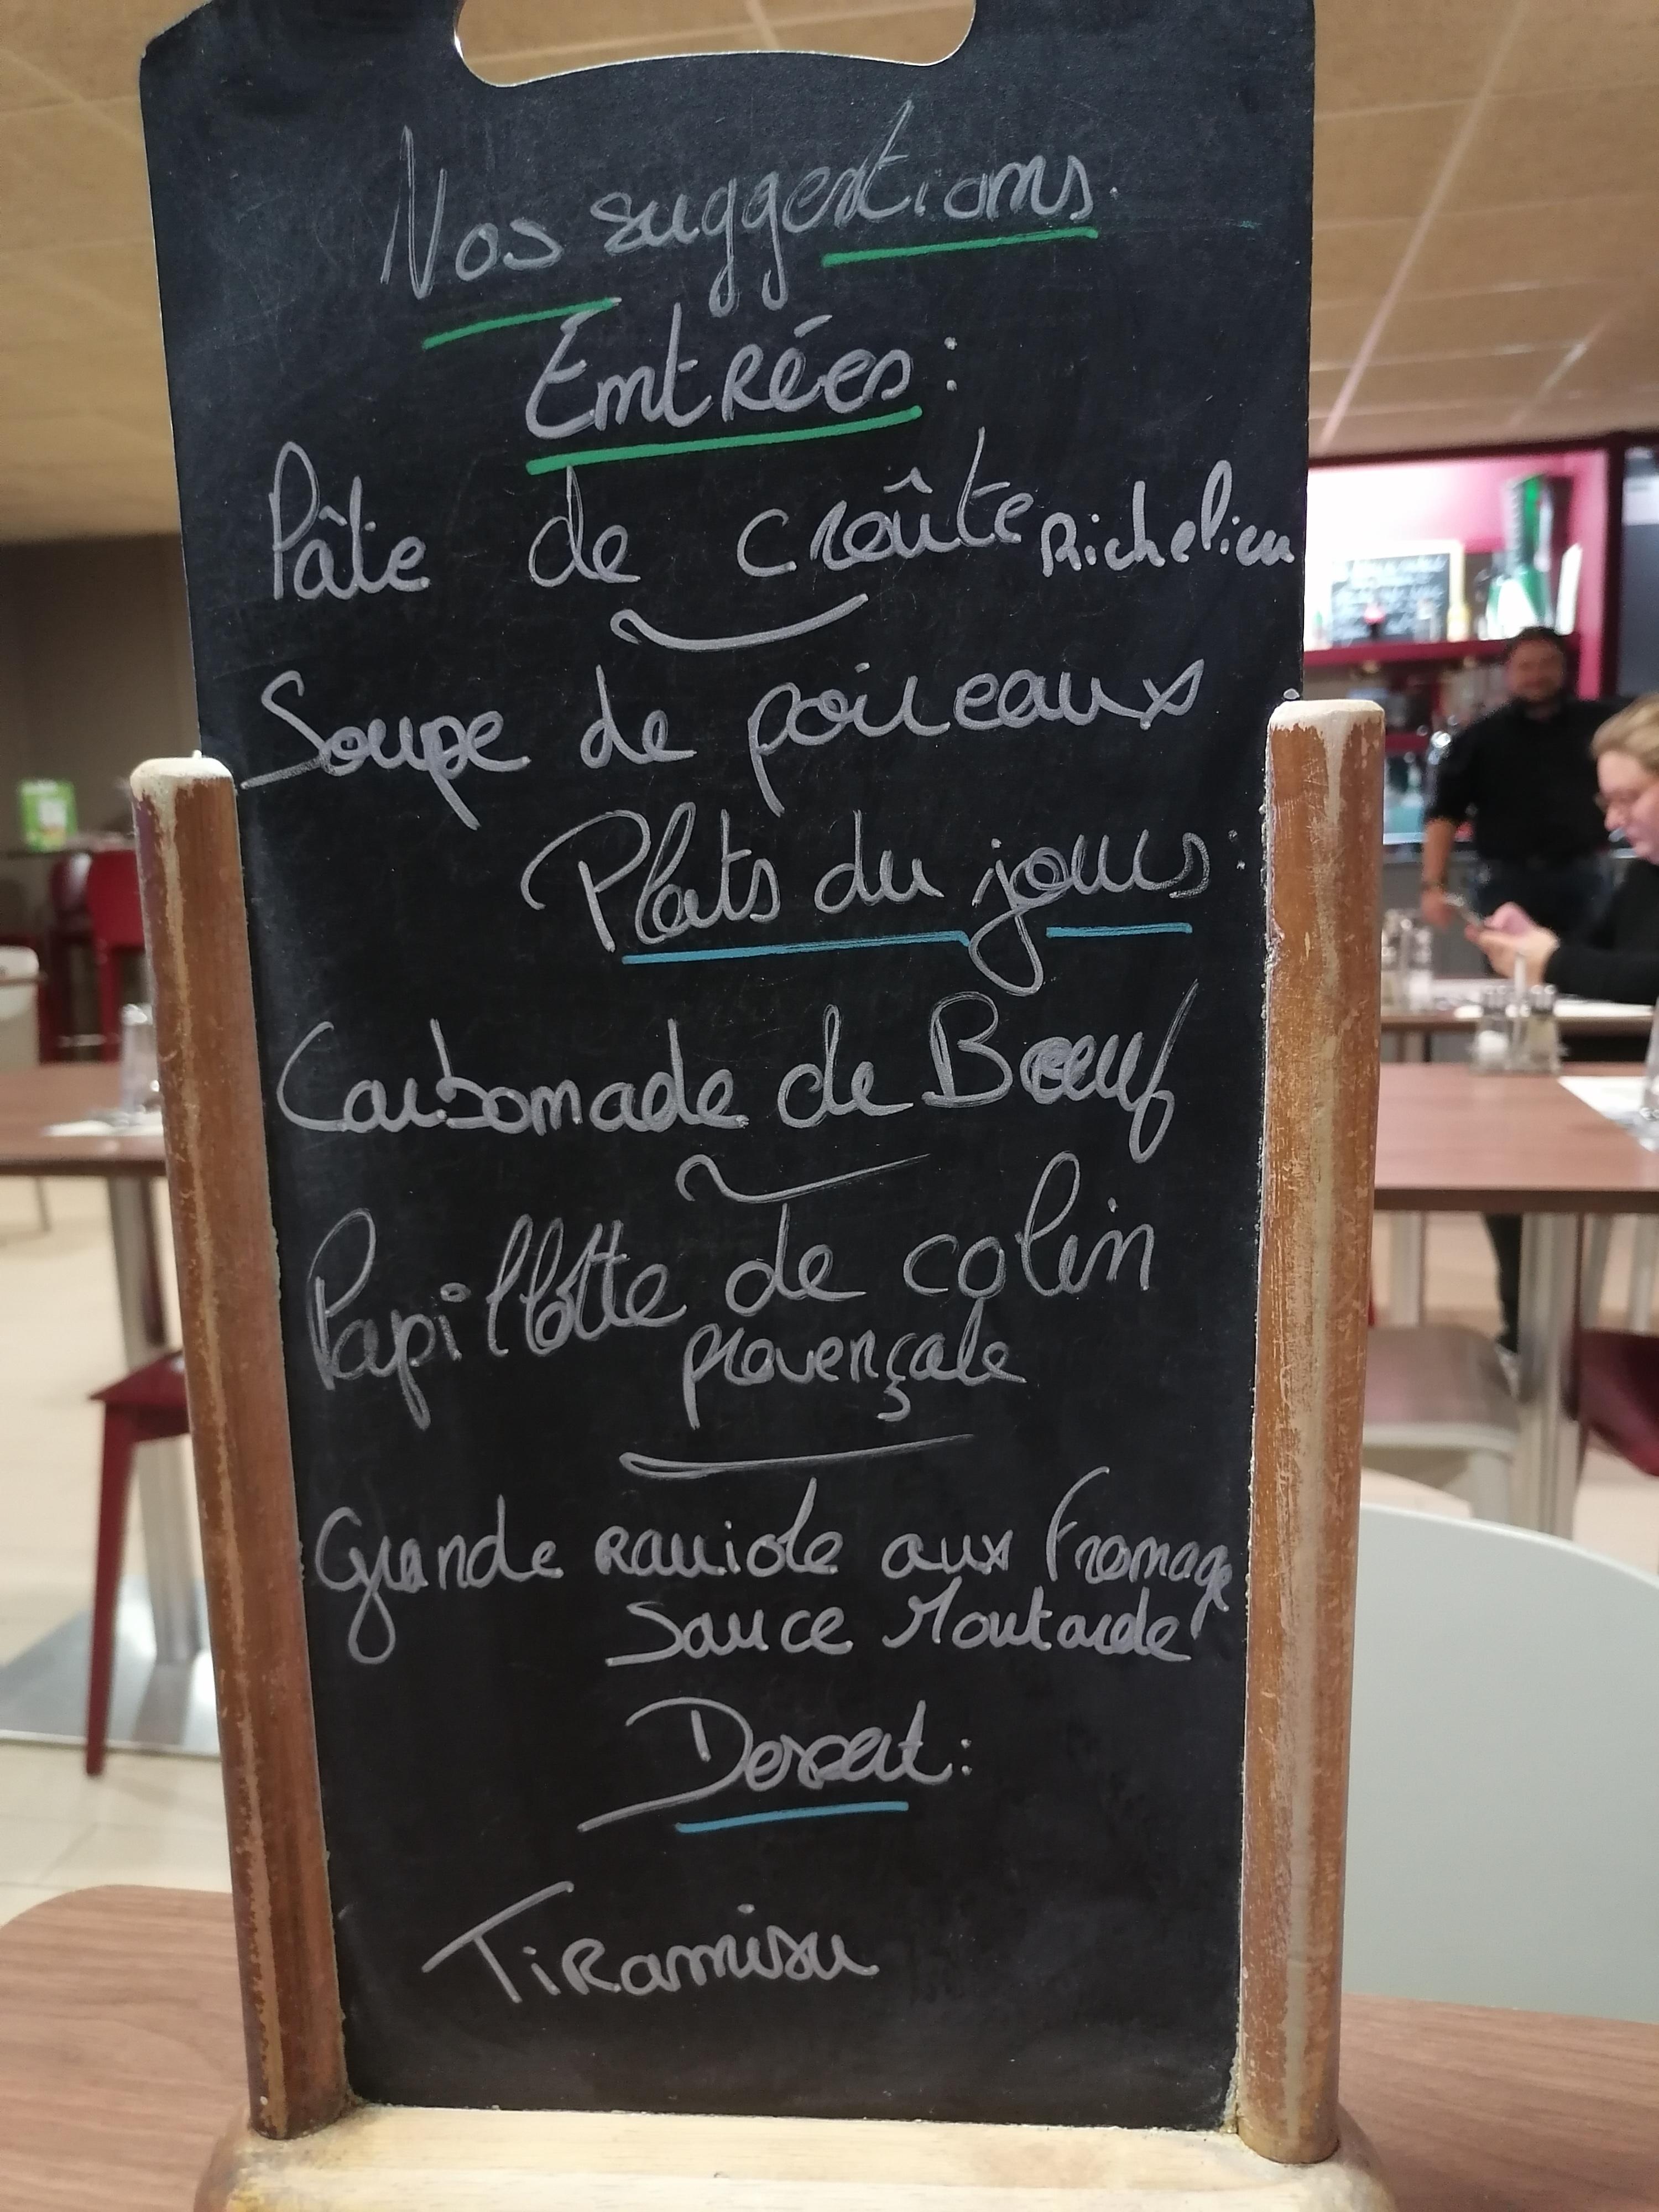 Nos suggestions.
Entrées :
Pâte de croûte Richelieu
Soupe de poireaux
Plats du jours :
Carbonade de Bœuf
Papillotte de colin
provençale
Grande raviole aux fromage
Sauce Moutarde
Dessert :
Tiramisu